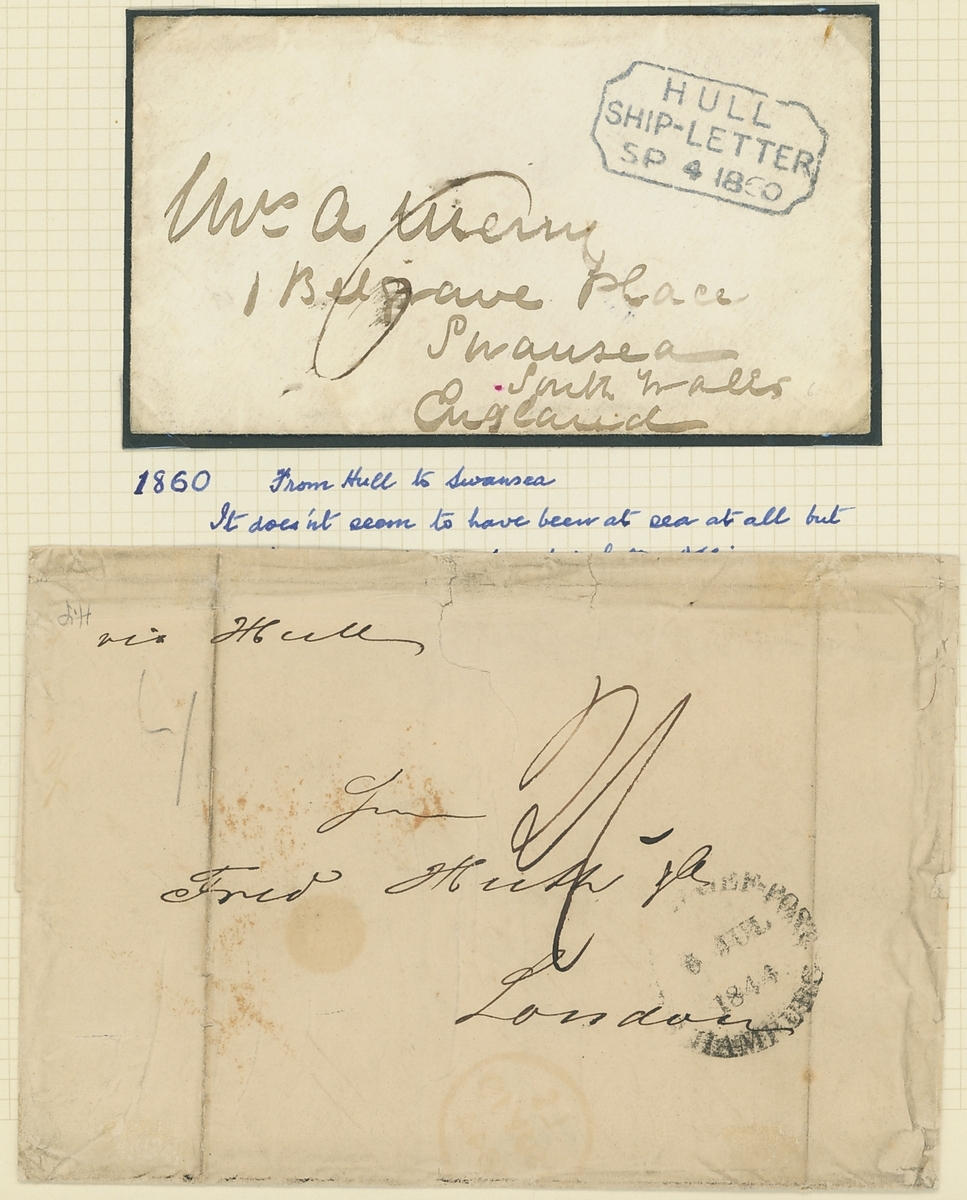 HULL
SHIP-LETTER
SP 4 1860
Mrs A Merry
1 Belgrave Place
Swansea
South Wales
England
1860 From Hull to Swansea
It does'nt seem to have been at sea at all but
via Hull
Fred Huth & Co
London
POST
JUL
1844
HAMBURG